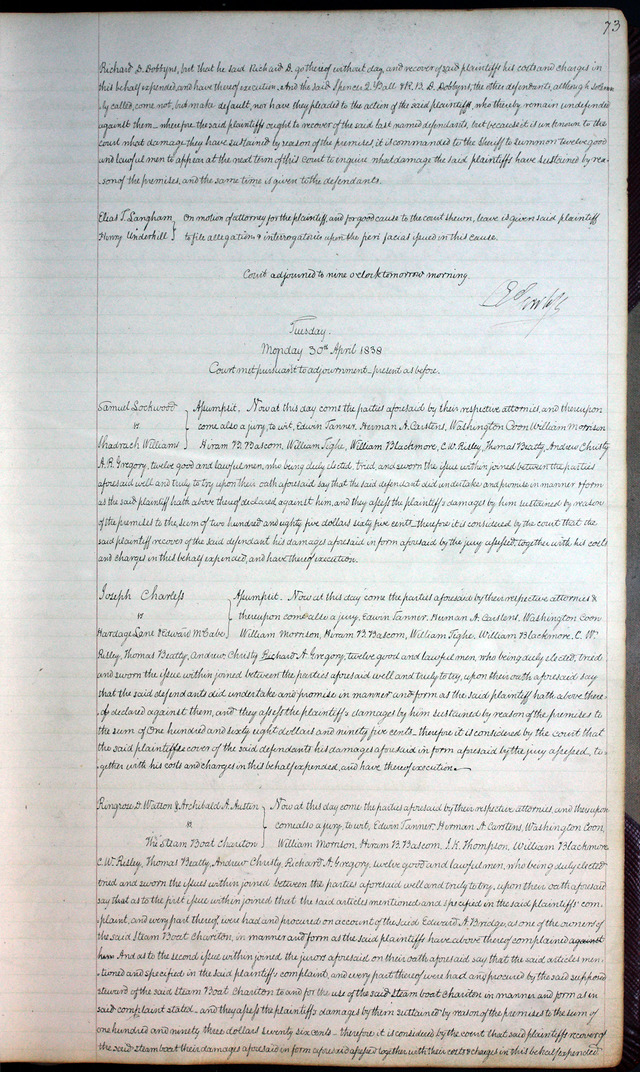 73
Richard D. Dobbyns, but that he said Richard D. go thereof without day, and recover of said plaintiffs his costs and charges in
this behalf expended, and have thereof execution. And the said Spencer J. Ball & R. B. D. Dobbyns, the other defendants, although solemn
ly called, come not, but make default, nor have they pleaded to the action of the said plaintiff, who thereby remain undefended
against them – wherefore the said plaintiff ought to recover of the said last named defendants, but because it is unknown to the
court what damage they have sustained by reason of the premises, it is commanded to the Sheriff to summon twelve good
and lawful men to appear at the next term of this Court to inquire what damage the said plaintiffs have sustained by rea-
son of the premises, and the same time is given to the defendants.
Elias T. Langham } On motion of attorney for the plaintiff, and for good cause to the court shewn, leave is given said plaintiff
Henry Underhill } to file allegations & interrogatories upon the fieri facias issued in this cause.
Court adjourned to nine o'clock tomorrow morning.
Tuesday.
Monday 30th April 1838
Court met pursuant to adjournment – present as before.
Samuel Lockwood } Assumpsit. Now at this day come the parties aforesaid by their respective attornies, and thereupon
vs } come also a jury, to wit, Edwin Tanner, Herman A. Carstens, Washington Coon, William Morrison
Shadrach Williams } Hiram B. Bascom, William Tighe, William Blackmore, C. W. Risley, Thomas Beatty, Andrew Christy
A. R. Gregory, twelve good and lawful men, who being duly elected, tried, and sworn the issue within joined between the parties
aforesaid well and truly to try upon their oath aforesaid say that the said defendant did undertake and promise in manner & form
as the said plaintiff hath above thereof declared against him, and they assess the plaintiff's damages by him sustained by reason
of the premises to the sum of two hundred and eighty five dollars sixty five cent – therefore it is considered by the court that the
said plaintiff recover of the said defendant his damages aforesaid in form aforesaid by the jury assessed, together with his costs
and charges in this behalf expended, and have thereof execution.
Joseph Charless } Assumpsit. Now at this day come the parties aforesaid by their respective attornies &
vs } thereupon come also a jury, Edwin Tanner, Herman A. Carstens, Washington Coon
Hardage Lane & Edward McCabe } William Morrison, Hiram B. Bascom, William Tighe, William Blackmore, C. W.
Risley, Thomas Beatty, Andrew Christy Richard A. Gregory, twelve good and lawful men, who being duly elected, tried
and sworn the issue within joined between the parties aforesaid well and truly to try, upon their oath aforesaid say
that the said defendants did undertake and promise in manner and form as the said plaintiff hath above there
of declared against them, and they assess the plaintiff's damages by him sustained by reason of the premises to
the sum of One hundred and sixty eight dollars and ninety five cents – therefore it is considered by the court that
the said plaintiff recover of the said defendants his damages aforesaid in form aforesaid by the jury assessed, to-
gether with his costs and charges in this behalf expended, and have thereof execution.
Ringrose D. Watson & Archibald A. Austin } Now at this day come the parties aforesaid by their respective attornies, and thereupon
vs } come also a jury, to wit, Edwin Tanner, Herman A. Carstens, Washington Coon,
The Steam Boat Chariton } William Morrison, Hiram B. Bascom, J. K. Thompson, William Blackmore
C. W. Risley, Thomas Beatty, Andrew Christy, Richard A. Gregory, twelve good and lawful men, who being duly elected
tried and sworn the issues within joined between the parties aforesaid well and truly to try, upon their oath aforesaid
say that as to the first issue within joined that the said articles mentioned and specified in the said plaintiffs' com-
plaint, and every part thereof, were had and procured on account of the said Edward A. Bridge, as one of the owners of
the said Steam Boat Chariton, in manner and form as the said plaintiffs have above thereof complained against
him And as to the second issue within joined the jurors aforesaid on their oath aforesaid say that the said articles men-
tioned and specified in the said plaintiffs complaint, and every part thereof were had and procured by the said supposed
steward of the said Steam Boat Chariton to and for the use of the said steam boat Chariton in manner and form as in
said complaint stated – and they assess the plaintiffs damages by them sustained by reason of the premises to the sum of
one hundred and ninety three dollars seventy six cents – therefore it is considered by the court that said plaintiffs recover of
the said steam boat their damages aforesaid in form aforesaid assessed together with their costs & charges in this behalf expended